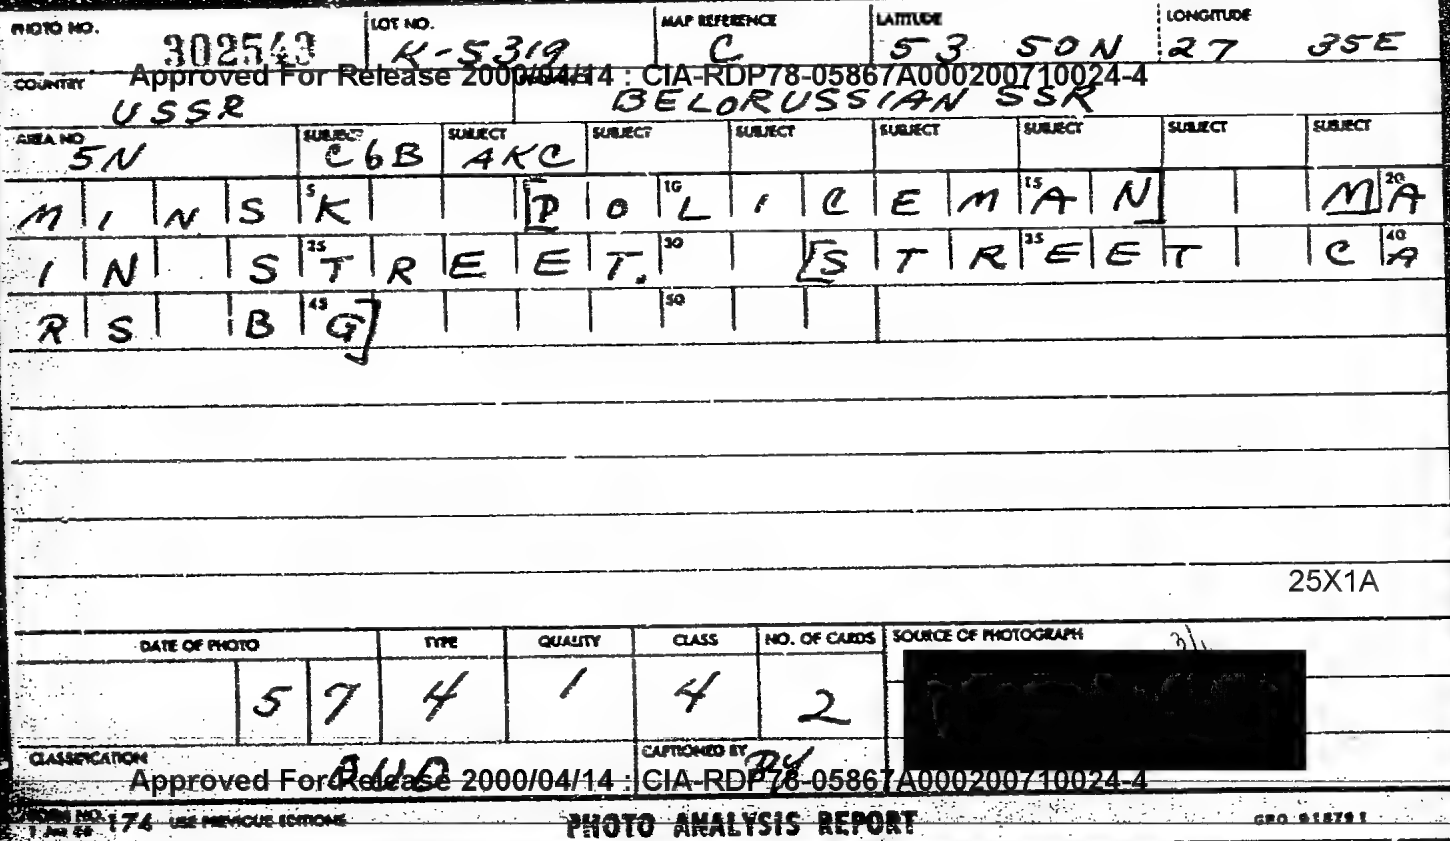 PHOTO NO. LOT NO. MAP REFERENCE LATITUDE LONGITUDE
302543 K-5319 C 53 50N 27 35E
Approved For Release 2000/04/14 : CIA-RDP78-05867A000200710024-4
COUNTRY
USSR BELORUSSIAN SSR
AREA NO SUBJECT SUBJECT SUBJECT SUBJECT SUBJECT SUBJECT SUBJECT SUBJECT
5N C6B AKC
5 10 15 20
MINSK [POLICEMAN] MA
25 30 35 40
IN STREET. [STREET CA
45 50
RS BG]
25X1A
DATE OF PHOTO TYPE QUALITY CLASS NO. OF CARDS SOURCE OF PHOTOGRAPH
57 4 1 4 2
CLASSIFICATION CAPTIONED BY
Approved For Release 2000/04/14 : CIA-RDP78-05867A000200710024-4
FORM NO. 174 USE PREVIOUS EDITIONS PHOTO ANALYSIS REPORT GPO 918791